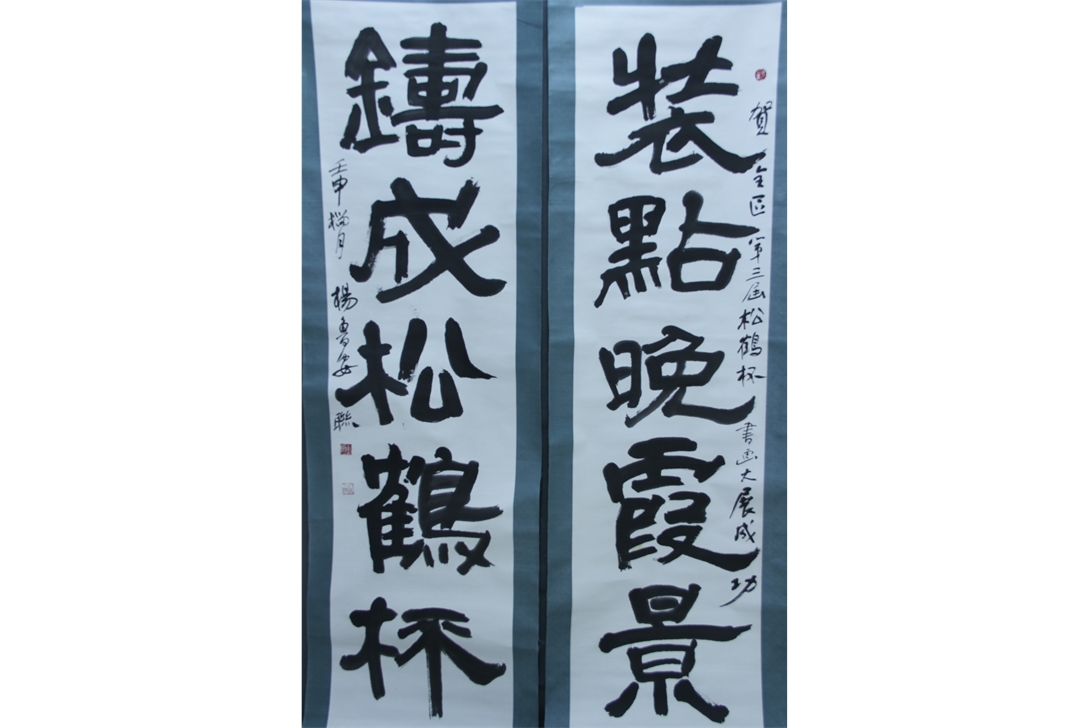 賀全區第三屆松鶴杯書画大展成功
裝點晚霞景
鑄成松鶴杯
壬申臘月 楊魯安聯